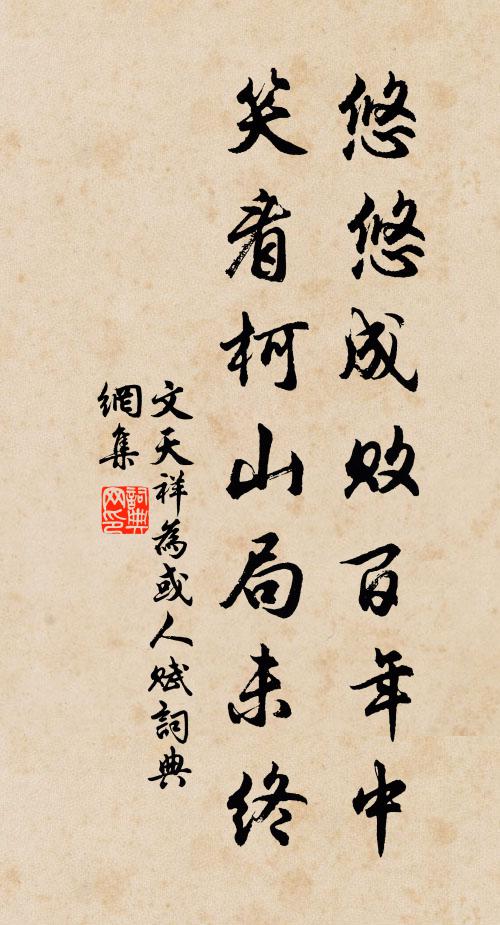 悠悠成敗百年中
笑看柯山局未終
文天祥為或人賦詞典
網集
詞典
网印